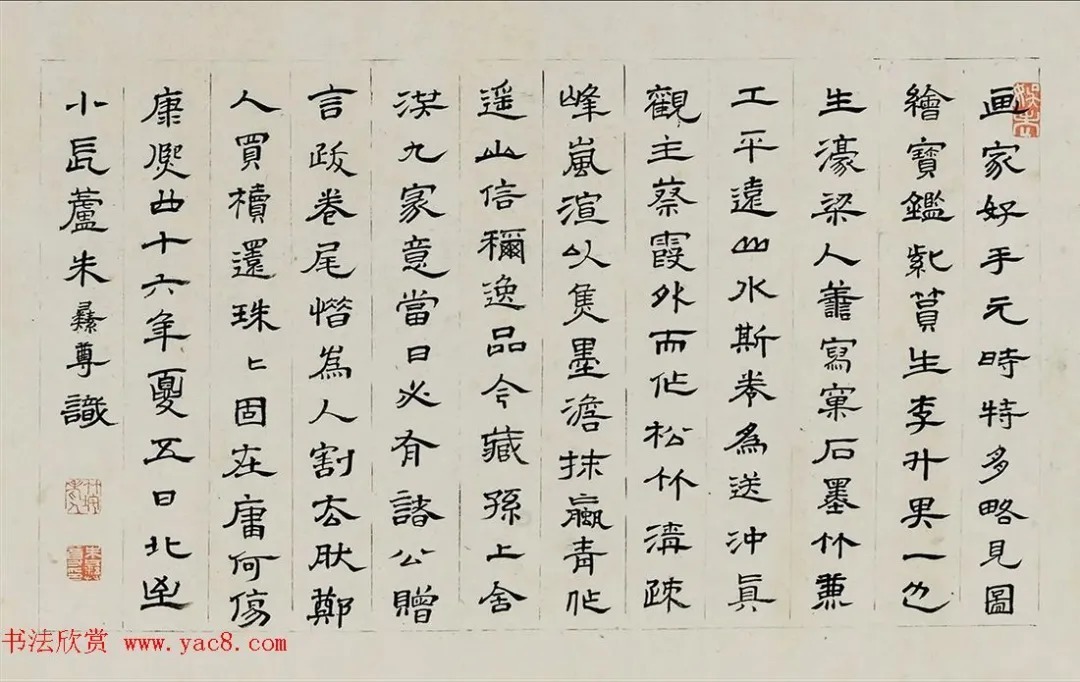 画家好手元時特多略見圖
繪寶鑑紫篔生李升其一也
生濠梁人善寫窠石墨竹兼
工平遠山水斯卷為送沖真
觀主蔡霞外而作松竹清疎
峰嵐渲以焦墨澹抹蠃青作
遥山信稱逸品今藏孫上舍
漢九家意當日必有諸公贈
言跋卷尾惜為人割去肰鄭
人買櫝還珠〻固在庸何傷
康熙四十六年夏五日北至
小長蘆朱彝尊識
书法欣赏 www.yac8.com